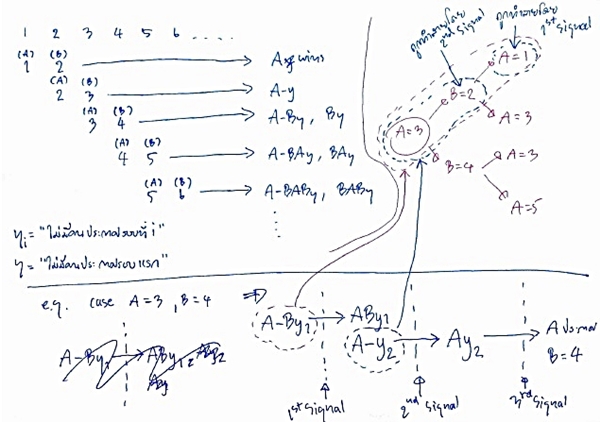 1 2 3 4 5 6 .....
(A) (B)
1 2 → A
(A) (B)
2 3 → A-y
(A) (B)
3 4 → A-By, By
(A) (B)
4 5 → A-BAy, BAy
(A) (B)
5 6 → A-BABy, BABy
ถูกทำลายโดย 2nd signal
ถูกทำลายโดย 1st signal
A=1
B=2
A=3
A=3
B=4
A=3
A=5
yi = "ไม่มีคนประกาศรอบที่ i"
y = "ไม่มีคนประกาศรอบแรก"
e.g. case A=3, B=4 ⇒
A-By1 → ABy1
A-y2 → Ay2 → A ประกาศ
B=4
1st signal
2nd signal
3rd signal